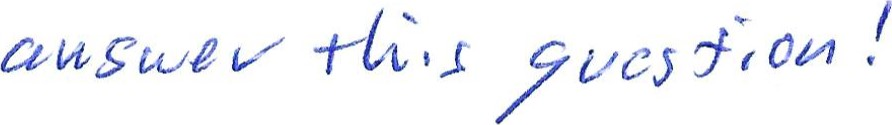 answer this question!